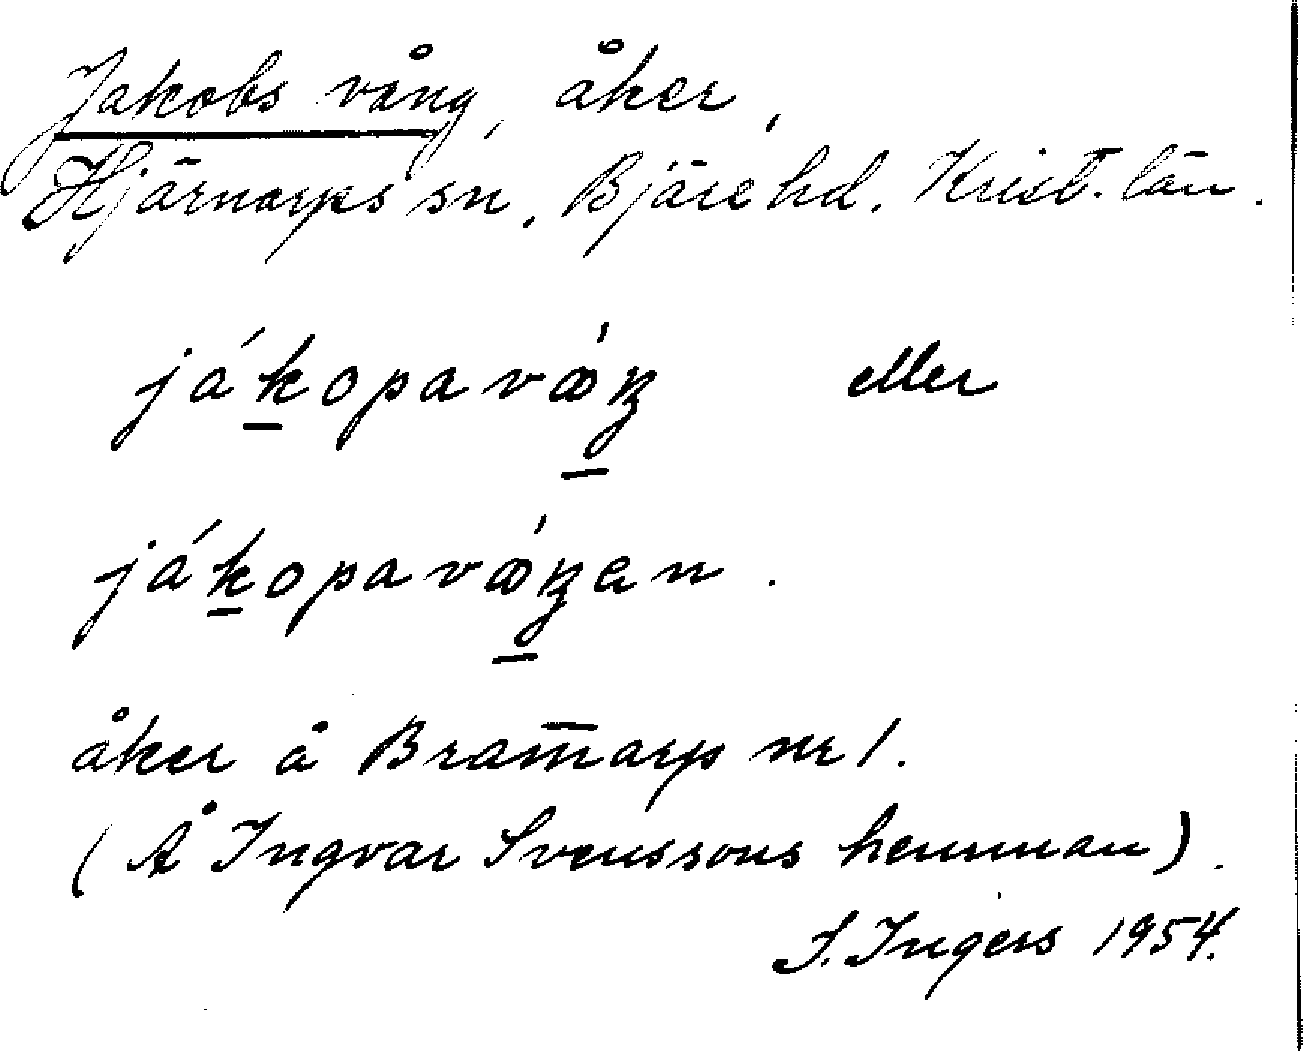 Jakobs vång, åker,
Hjärnarps sn, Bjäre hd. Krist. län.
jákopavǿŋ eller
jákopavǿŋan.
åker å Bram̄arp nr 1.
(Å Ingvar Svenssons hemman).
I. Ingers 1954.